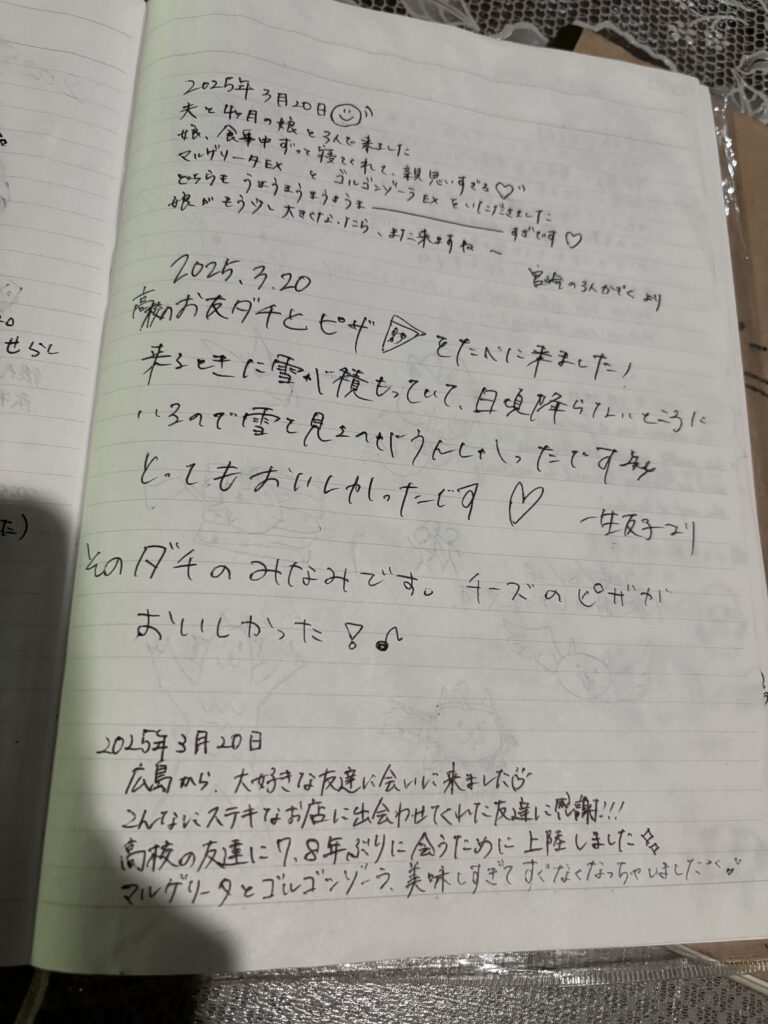 2025年3月20日
夫と4ヶ月の娘と3人で来ました
娘、食事中ずっと寝てくれて、親思いすぎる♡
マルゲリータEX と ゴルゴンゾーラEX をいただきました
どちらも うまうまうまうまうま――――――すぎです♡
娘がもう少し大きくなったら、また来ますね〜
宮崎の3人かぞくより
2025.3.20
高校のお友ダチとピザをたべに来ました!
来るときに雪が積もっていて、日頃降らないところに
いるので雪を見れてうれしかったです
とってもおいしかったです♡
より
そのダチのみなみです。チーズのピザが
おいしかった!♪
2025年3月20日
広島から、大好きな友達に会いに来ました
こんなにステキなお店に出会わせてくれた友達に感謝!!!
高校の友達に7、8年ぶりに会うために上陸しました
マルゲリータとゴルゴンゾーラ、美味しすぎてすぐなくなっちゃいました
せらし
た)